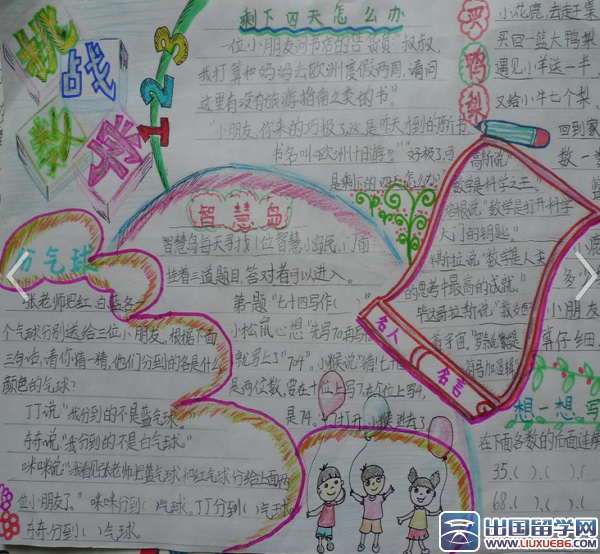 挑战
数学
123
剩下四天怎么办
一位小朋友问书店的售货员"叔叔，
我打算和妈妈去欧洲度假两周，请问
这里有没有旅游指南之类的书。"
"小朋友，你来的巧极了，这是昨天刚到的新书，
书名叫《欧洲十日游》。""好极了，可
是剩下的四天怎么办"
买鸭梨
小花鹿，去赶集
买回一篮大鸭梨
遇见小羊送一半，
又给小牛七个梨。
回到家
数一数
小鹿
多少
小朋友
事仔细
智慧岛
智慧岛每天寻找1位智慧小岛民，门前
挂着三道题目，答对者可以进入。
第一题"七十四写作（ ）"
小松鼠心想"先写70再写4
就写上了"704"。小猴说"错！七十四
是两位数，要在十位上写7，在个位上写4，
是74。"门打开，小猴进去了。
分气球
张老师把红、白、蓝各一
个气球分别送给三位小朋友。根据下面
三句话，请你猜一猜，他们分到的各是什么
颜色的气球？
丁丁说："我分到的不是蓝气球。"
冬冬说："我分到的不是白气球。"
咪咪说："我看见张老师把蓝气球和红气球分给上面两
位小朋友了。"咪咪分到（ ）气球。丁丁分到（ ）气球
冬冬分到（ ）气球。
高斯说"
数学是科学之王。
培根说"数学是打开科学
大门的钥匙。"
"数学是人类
的思考中最高的成就。"
毕达哥拉斯说"
名人名言
想一想 写
在下面各数的后面连续
35.( ).( ).( )
68.( ).( ).( )
出国留学网
WWW.LIUXUE86.COM